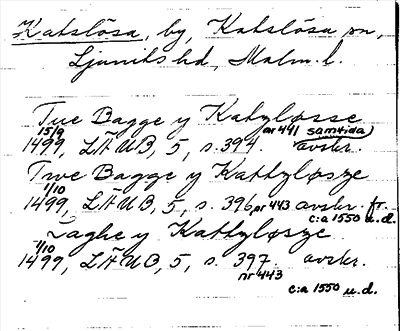 Katslösa, by, Katslösa sn,
Ljunits hd, Malm. l.
Tue Bagge y Katzløsse
15/9 1499, LÄUB, 5, s. 394. nr 441 (samtida) avskr.
Twe Bagge y Kattzløsze
1/10 1499, LÄUB, 5, s. 396, nr 443 avskr. fr. c:a 1550 u.d.
Laghe y Kattzløsze
1/10 1499, LÄUB, 5, s. 397. avskr.
nr 443 c:a 1550 u.d.